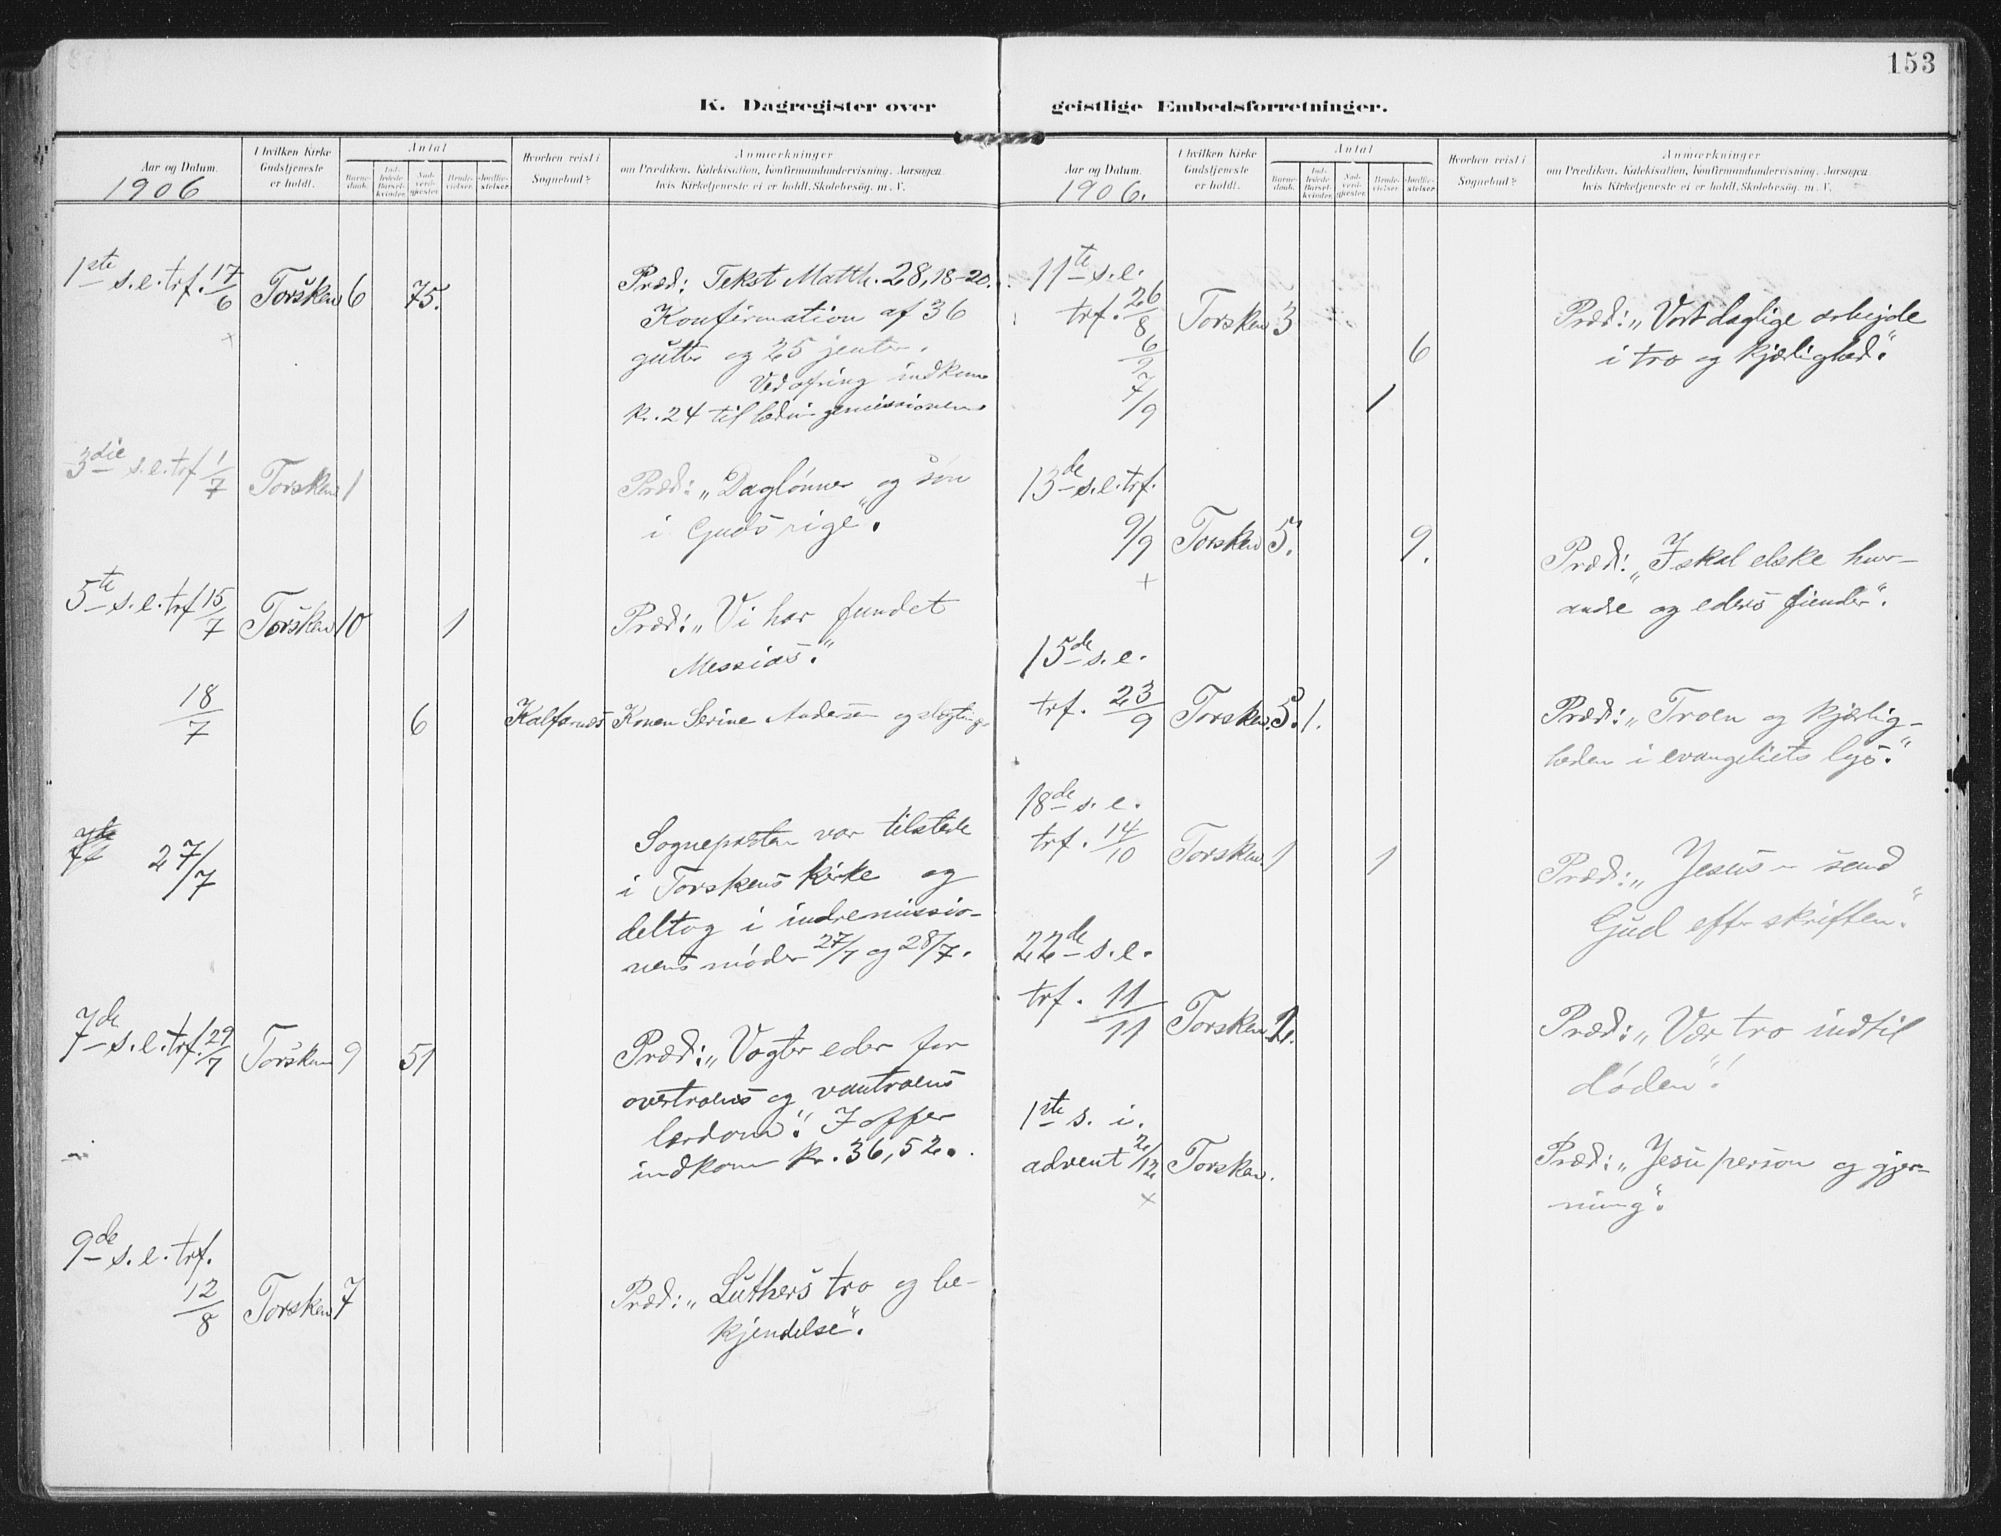 153
K. Dagregister over geistlige Embedsforretninger.
Aar og Datum.
1906
I hvilken Kirke Gudstjeneste er holdt.
Antal
Barnedaab.
Indledede Barselkvinder.
Nadverdgjester.
Brudevielser.
Jordfæstelser.
Hvorhen reist i Sognebud?
Anmærkninger
om Prædiken, Katekisation, Konfirmandundervisning. Aarsagen
hvis Kirketjeneste ei er holdt. Skolebesøg. m. V.
1ste s. e. trf. 17/6 Torsken 6 75. Præd: Tekst Matth. 28,18-20.
Konfirmation af 36
gutter og 25 jenter.
Ved ofring indkom
kr. 24 til hedningemissionen
3die s. e. trf 1/7 Torsken 1 Præd: „Daglønner og søn
i Guds rige“.
5te s. e. trf 15/7 Torsken 10 1 Præd: „Vi har fundet
Messias.“
18/7 6 Kalfarnes Konen Serine Andersen og slegtninge
27/7 Sognepresten var tilstede
i Torskens kirke og
deltog i indremissio-
nens møder 27/7 og 28/7.
7de s. e. trf. 29/7 Torsken 9 51 Præd: „Vogter eder for
overtroens og vantroens
lærdom“. I offer
indkom kr. 36,52.
9de s. e. trf.
12/8 Torsken 7 Præd: „Luthers tro og be-
kjendelse“.
Aar og Datum.
1906.
I hvilken Kirke Gudstjeneste er holdt.
Antal
Barnedaab.
Indledede Barselkvinder.
Nadverdgjester.
Brudevielser.
Jordfæstelser.
Hvorhen reist i Sognebud?
Anmærkninger
om Prædiken, Katekisation, Konfirmandundervisning. Aarsagen
hvis Kirketjeneste ei er holdt. Skolebesøg. m. V.
11te s. e.
trf. 26/8 Torsken 3 Præd: „Vort daglige arbejde
6/9 6 i tro og kjærlighed“.
7/9 1
13de s. e. trf.
9/9 Torsken 5. 9. Præd: „I skal elske hver-
andre og eders fiender“.
15de s. e.
trf. 23/9 Torsken. 5. 1. Præd: „Troen og kjærlig-
heden i evangeliets lys.“
18de s. e.
trf. 14/10 Torsken. 1 1 Præd: „Jesus – sand
Gud efter skriften“.
22de s. e.
trf. 11/11 Torsken 2. Præd: „Vær tro indtil
døden“!
1ste s. i.
advent 2/12 Torsken. Præd: „Jesu person og gjer-
ning“.